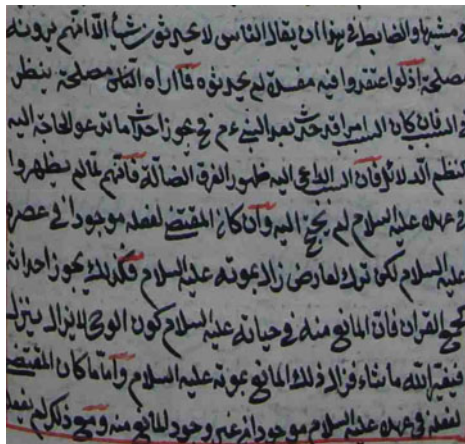 في مشيها والضابط في هذا ان يقال الناس لا يحدثون شيأ الا انهم يرونه
مصلحة اذ لو اعتقدوا فيه مفسدة لم يحدثوه فما رآه الناس مصلحة ينظر
في السبب فان كان السبب امرا قد حدث بعد النبي ءم فح يجوز احداث ما تدعو الحاجة اليه
كنظم الدلائل فان السبب الداعي اليه ظهور الفرق الضالة فانهم لما لم يظهروا
في عهده عليه السلام لم يحتج اليه وان كان المقتضى لفعله موجودا في عصره
عليه السلام لكن ترك لعارض زال بموته عليه السلام فكذلك يجوز احداثه
كجمع القرآن فان المانع منه في حياته عليه السلام كون الوحي لا يزال ينزل
فيغير الله ما يشاء فزال ذلك المانع بموته عليه السلام واما ما كان المقتضى
لفعله في عهده عليه السلام موجودا من غير وجود المانع منه ومع ذلك لم يفعله